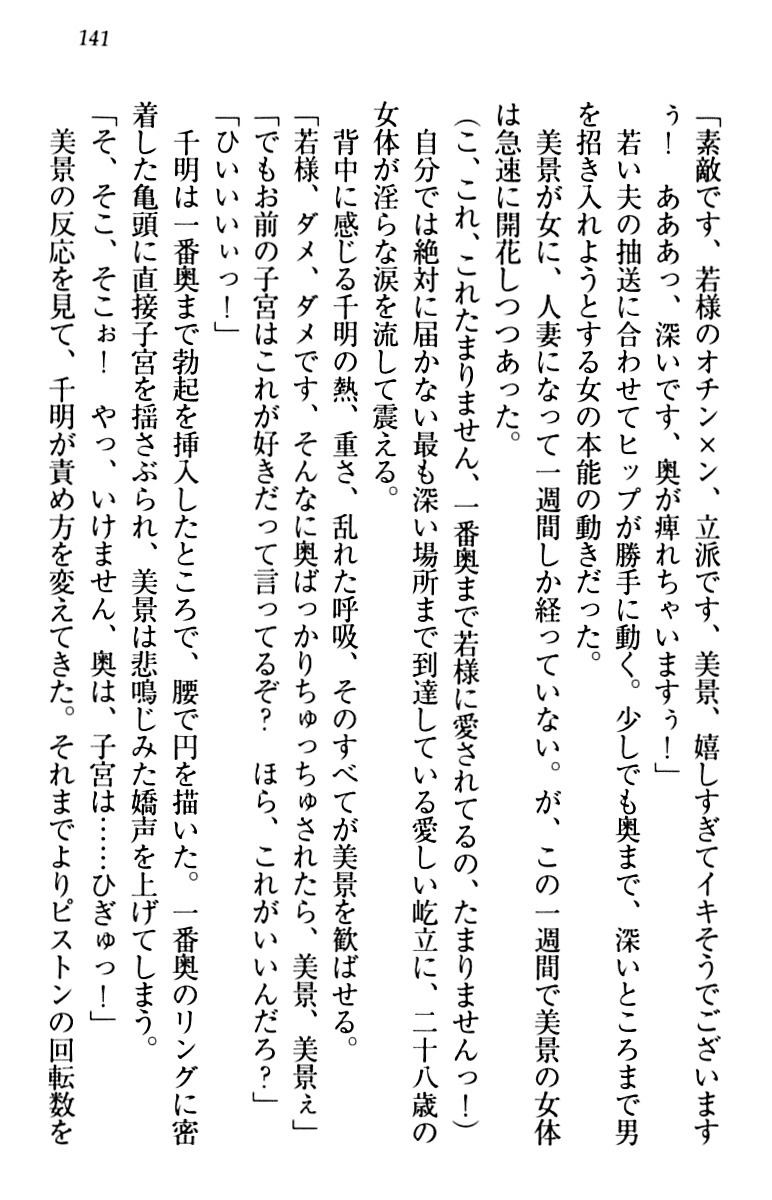 141
「素敵です、若様のオチン×ン、立派です、美景、嬉しすぎてイキそうでございます
ぅ！　あああっ、深いです、奥が痺れちゃいますぅ！」
　若い夫の抽送に合わせてヒップが勝手に動く。少しでも奥まで、深いところまで男
を招き入れようとする女の本能の動きだった。
　美景が女に、人妻になって一週間しか経っていない。が、この一週間で美景の女体
は急速に開花しつつあった。
（こ、これ、これたまりません、一番奥まで若様に愛されてるの、たまりませんっ！）
　自分では絶対に届かない最も深い場所まで到達している愛しい屹立に、二十八歳の
女体が淫らな涙を流して震える。
　背中に感じる千明の熱、重さ、乱れた呼吸、そのすべてが美景を歓ばせる。
「若様、ダメ、ダメです、そんなに奥ばっかりちゅっちゅされたら、美景、美景ぇ」
「でもお前の子宮はこれが好きだって言ってるぞ？　ほら、これがいいんだろ？」
「ひいいいぃっ！」
　千明は一番奥まで勃起を挿入したところで、腰で円を描いた。一番奥のリングに密
着した亀頭に直接子宮を揺さぶられ、美景は悲鳴じみた嬌声を上げてしまう。
「そ、そこ、そこぉ！　やっ、いけません、奥は、子宮は……ひぎゅっ！」
　美景の反応を見て、千明が責め方を変えてきた。それまでよりピストンの回転数を